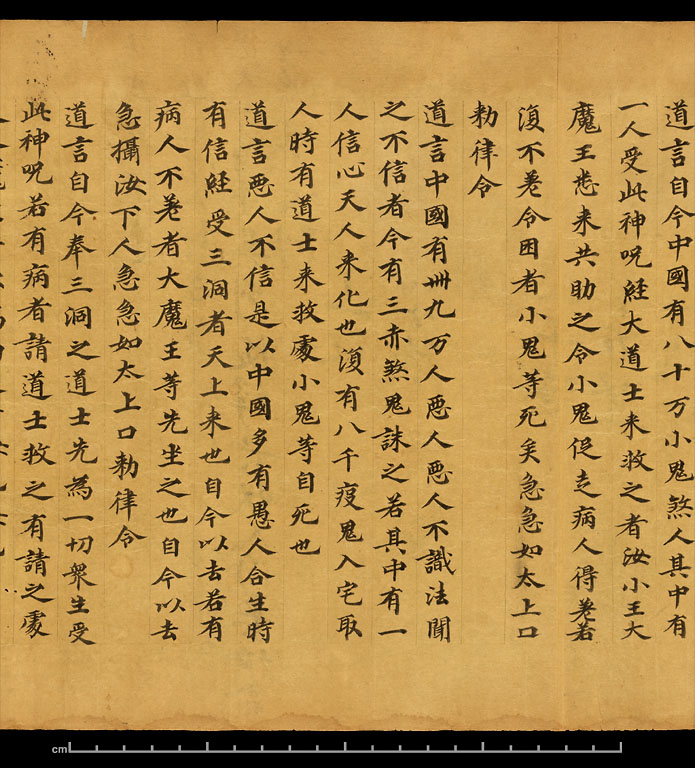 道言自今中國有八十万小鬼煞人其中有
一人受此神呪経大道士来救之者汝小王大
魔王悉来共助之令小鬼促走病人得差若
復不差令困者小鬼等死矣急急如太上口
勑律令
道言中國有卌九万人惡人惡人不識法聞
之不信者今有三赤煞鬼誅之若其中有一
人信心天人来化也復有八千疫鬼入宅取
人時有道士来救處小鬼等自死也
道言惡人不信是以中國多有愚人合生時
有信経受三洞者天上来也自今以去若有
病人不差者大魔王等先坐之也自今以去
急攝汝下人急急如太上口勑律令
道言自今奉三洞之道士先為一切衆生受
此神呪若有病者請道士救之有請之處